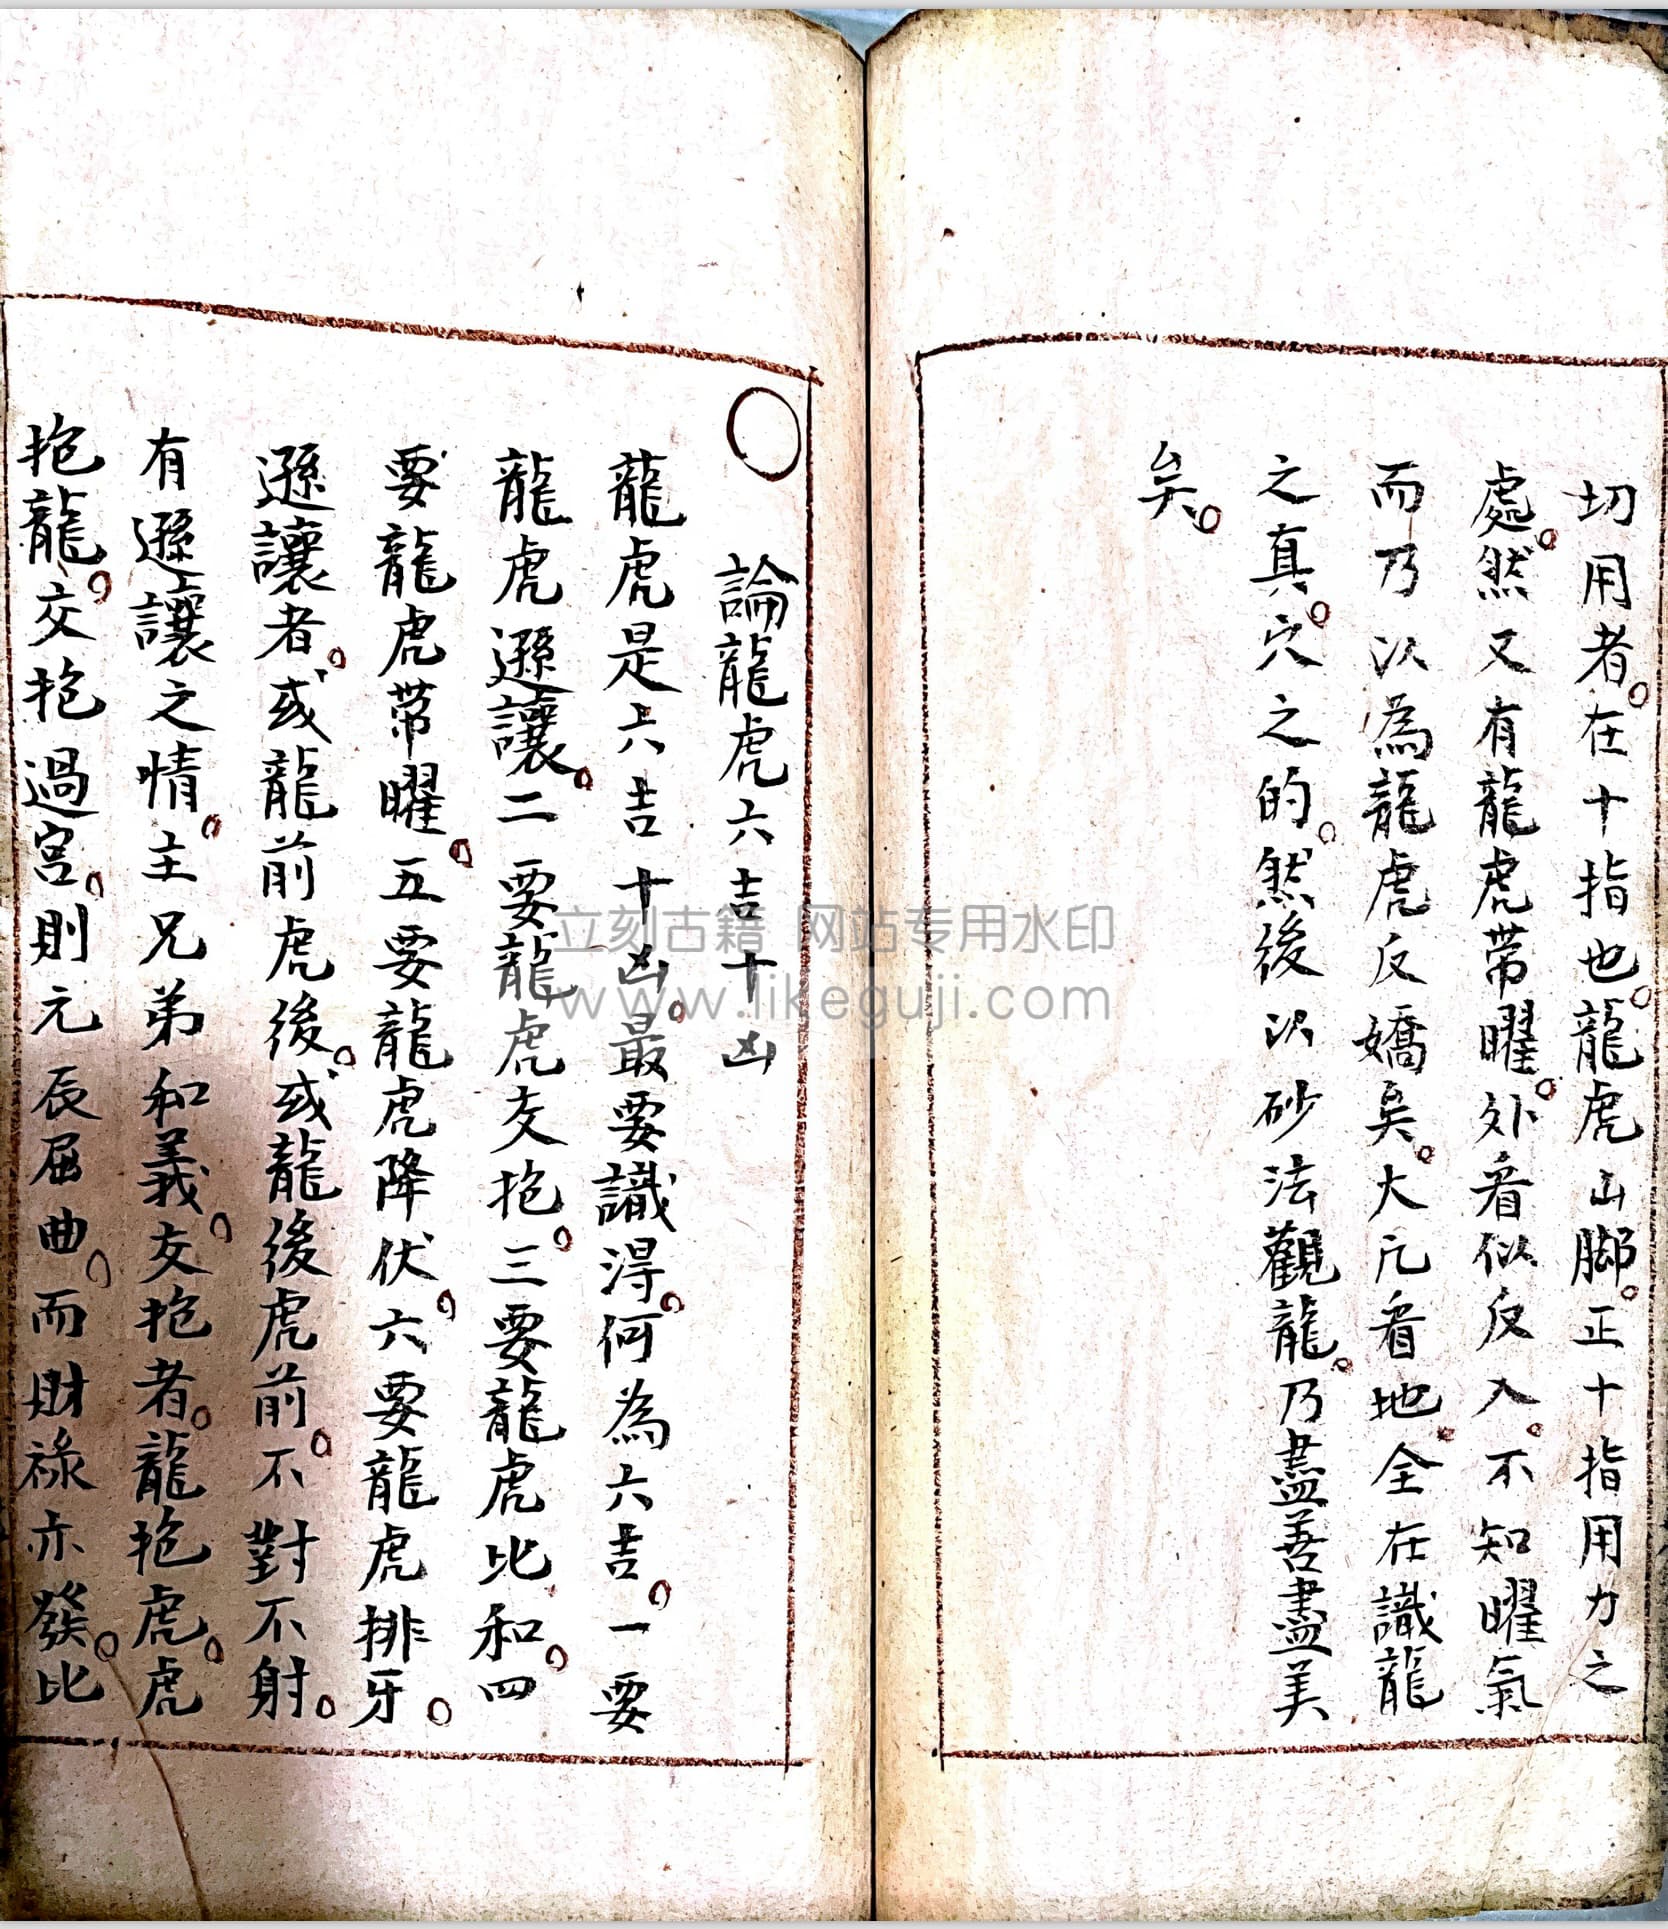 切用者。在十指也。龍虎山脚。正十指用力之
處。然又有龍虎帶曜。外看似反入。不知曜氣
而乃以為龍虎反嬌矣。大凡看地。全在識龍
之真。穴之的。然後以砂法觀龍。乃盡善盡美
矣。
○論龍虎六吉十凶
龍虎是六吉十凶。最要識得。何為六吉。一要
龍虎遜讓。二要龍虎交抱。三要龍虎比和。四
要龍虎帶曜。五要龍虎降伏。六要龍虎排牙。
遜讓者。或龍前虎後。或龍後虎前。不對不射。
有遜讓之情。主兄弟和義。交抱者。龍抱虎。虎
抱龍。交抱過宮。則元辰屈曲。而財祿亦發。比
立刻古籍 网站专用水印
www.likeguji.com